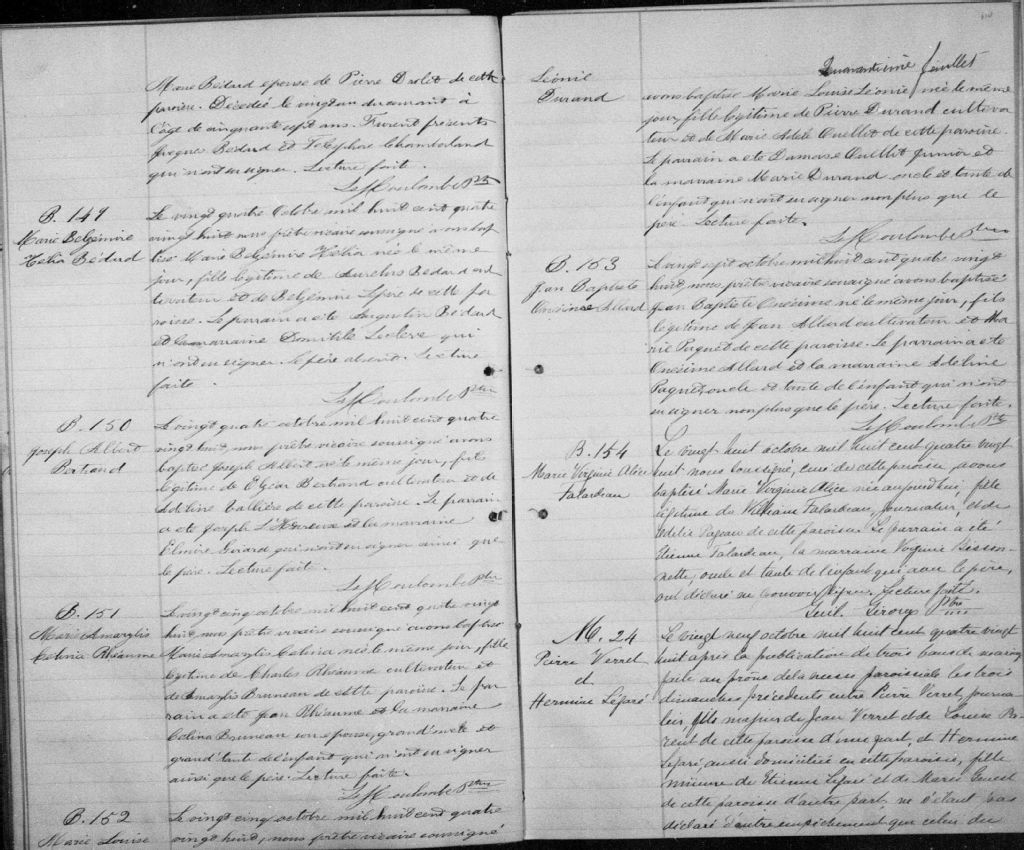 Marie Bédard épouse de Pierre Drolet de cette
paroisse. Décédée le vingt du courant à
l'âge de cinquante sept ans. Furent présents
Bédard et Télesphore Chamberland
qui n'ont su signer. Lecture faite.
Ptre
B. 149
Marie Belzémire
Hélia Bédard
Le vingt quatre Octobre mil huit cent quatre
vingt huit nous prêtre vicaire soussigné avons bap
tisé Marie Belzémire Hélia née le même
jour, fille légitime de Aurelius Bédard cul
tivateur et de Belzémire Lépine de cette pa
roisse. Le parrain a été Augustin Bédard
et la marraine Domitile Leclerc qui
n'ont su signer. Le père absent. Lecture
faite.
Ptre
B. 150
Joseph Albert
Bertrand
Le vingt quatre octobre mil huit cent quatre
vingt huit, nous prêtre vicaire soussigné avons
baptisé Joseph Albert né le même jour, fils
légitime de Elzéar Bertrand cultivateur et de
Adeline de cette paroisse. Le parrain
a été Joseph L'Heureux et la marraine
Elmire Girard qui n'ont su signer ainsi que
le père. Lecture faite.
Ptre
B. 151
Marie Amarylis
Célina Rhéaume
Le vingt cinq octobre mil huit cent quatre vingt
huit, nous prêtre vicaire soussigné avons baptisé
Marie Amarylis Célina née le même jour, fille
légitime de Charles Rhéaume cultivateur et
de Amarylis Bruneau de cette paroisse. Le par
rain a été Jean Rhéaume et la marraine
Célina Bruneau son épouse, grand'oncle et
grand'tante de l'enfant qui n'ont su signer
ainsi que le père. Lecture faite.
Ptre
B. 152
Marie Louise
Le vingt cinq octobre mil huit cent quatre
vingt huit, nous prêtre vicaire soussigné
Quarantième feuillet
Léonie
Durand
avons baptisé Marie Louise Léonie née le même
jour, fille légitime de Pierre Durand cultiva
teur et de Marie Adèle Ouellet de cette paroisse.
Le parrain a été Damase Ouellet junior et
la marraine Marie Durand oncle et tante de
l'enfant qui n'ont su signer non plus que le
père. Lecture faite.
Ptre
B. 153
Jean Baptiste
Onésime Allard
Le vingt sept octobre mil huit cent quatre vingt
huit, nous prêtre vicaire soussigné avons baptisé
Jean Baptiste Onésime né le même jour, fils
légitime de Jean Allard cultivateur et Ma
rie Paquet de cette paroisse. Le parrain a été
Onésime Allard et la marraine Adeline
Paquet, oncle et tante de l'enfant qui n'ont
su signer non plus que le père. Lecture faite.
Ptre
B. 154
Marie Virginie Alice
Falardeau
Le vingt huit octobre mil huit cent quatre vingt
huit nous soussigné, curé de cette paroisse, avons
baptisé Marie Virginie Alice née aujourd'hui, fille
légitime de William Falardeau, journalier, et de
Adélie Pageau de cette paroisse. Le parrain a été
Etienne Falardeau, la marraine Virginie Bisson-
nette, oncle et tante de l'enfant qui avec le père,
ont déclaré ne pouvoir signer. Lecture faite.
Guil. Giroux Ptre
M. 24
Pierre Verret
et
Hermine Légaré
Le vingt neuf octobre mil huit cent quatre vingt
huit après la publication de trois bans de mariage
faite au prône de la messe paroissiale les trois
dimanches précédents entre Pierre Verret, journa-
lier, fils majeur de Jean Verret et de Louise Pa-
rent de cette paroisse d'une part, et Hermine
Légaré, aussi domiciliée en cette paroisse, fille
mineure de Etienne Légaré et de Marie Genest
de cette paroisse d'autre part, ne s'étant pas
déclaré d'autre empêchement que celui du